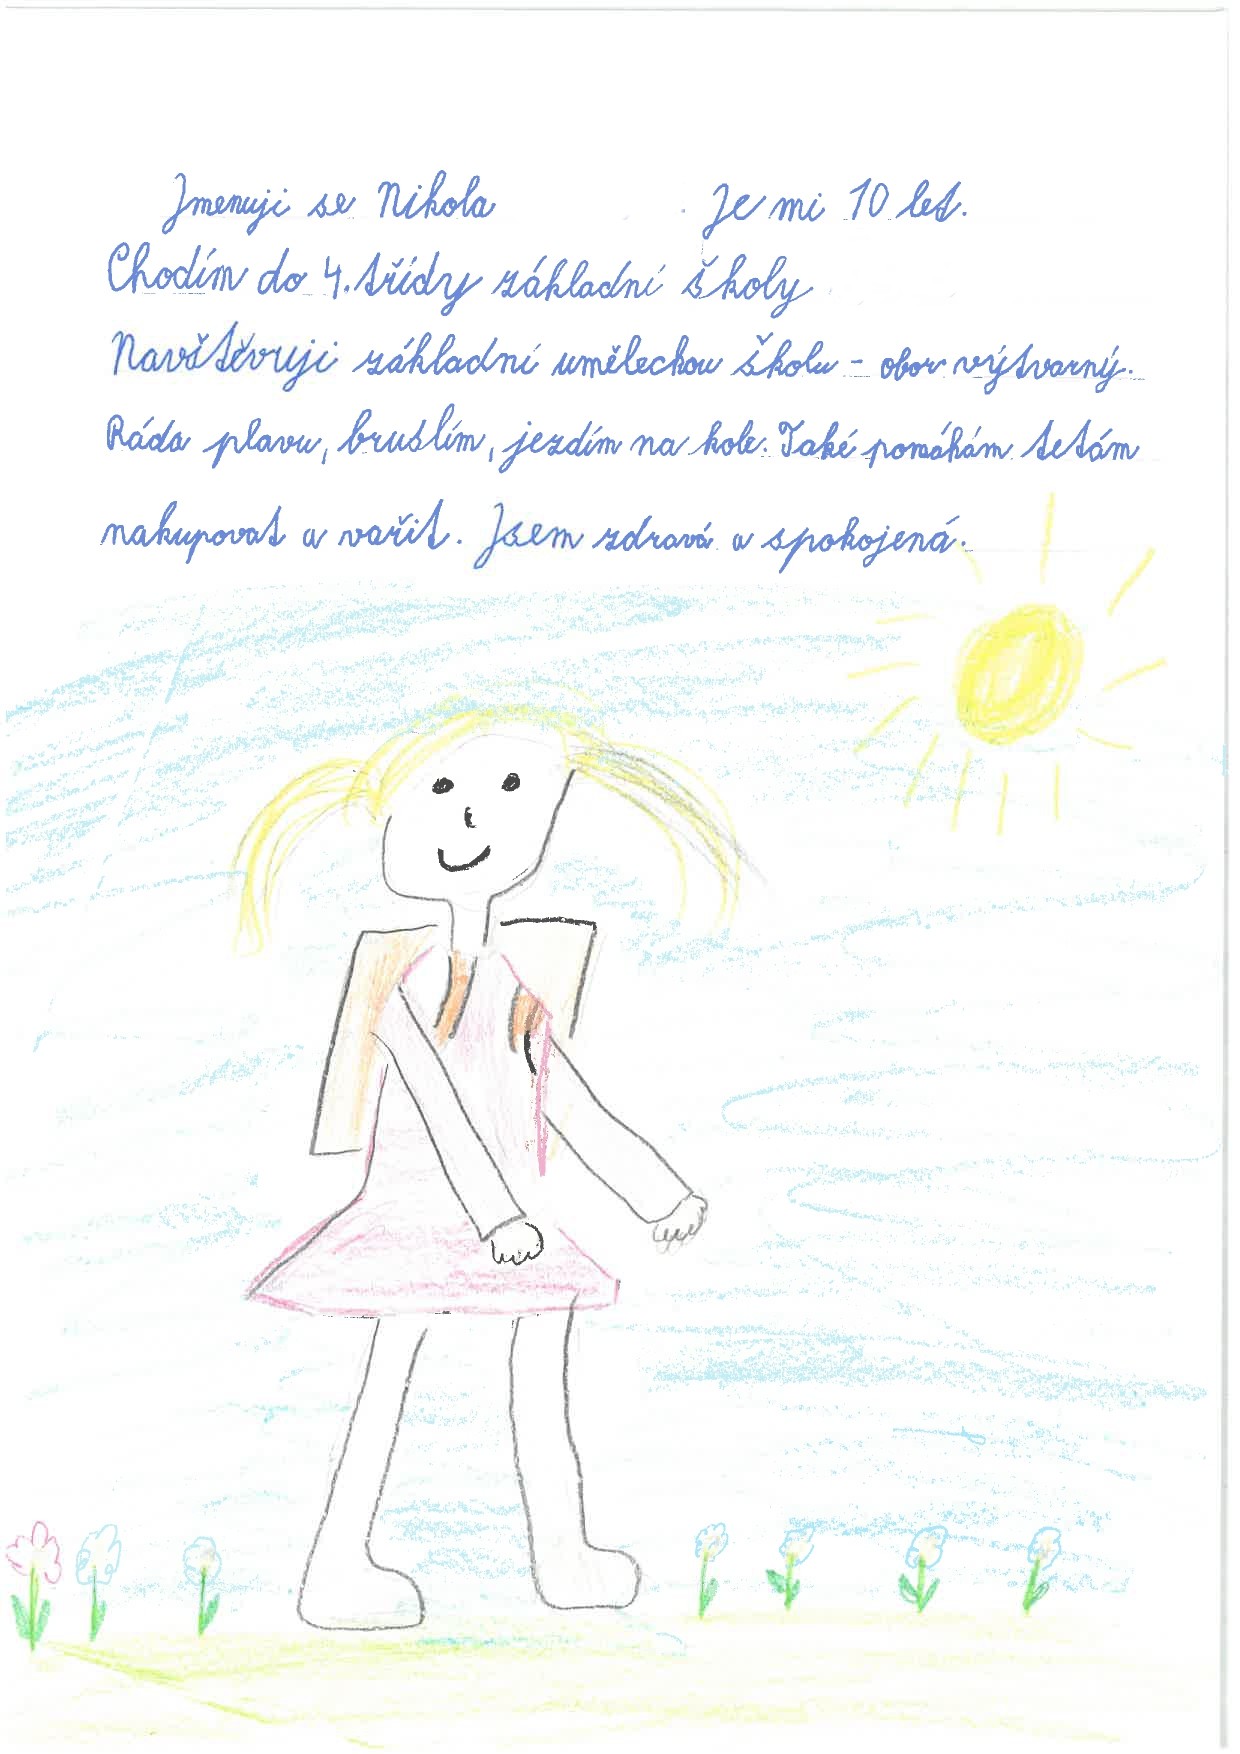 Jmenuji se Nikola Je mi 10 let.
Chodím do 4. třídy základní školy
Navštěvuji základní uměleckou školu - obor výtvarný.
Ráda plavu, bruslím, jezdím na kole. Také pomáhám tetám
nakupovat a vařit. Jsem zdravá a spokojená.